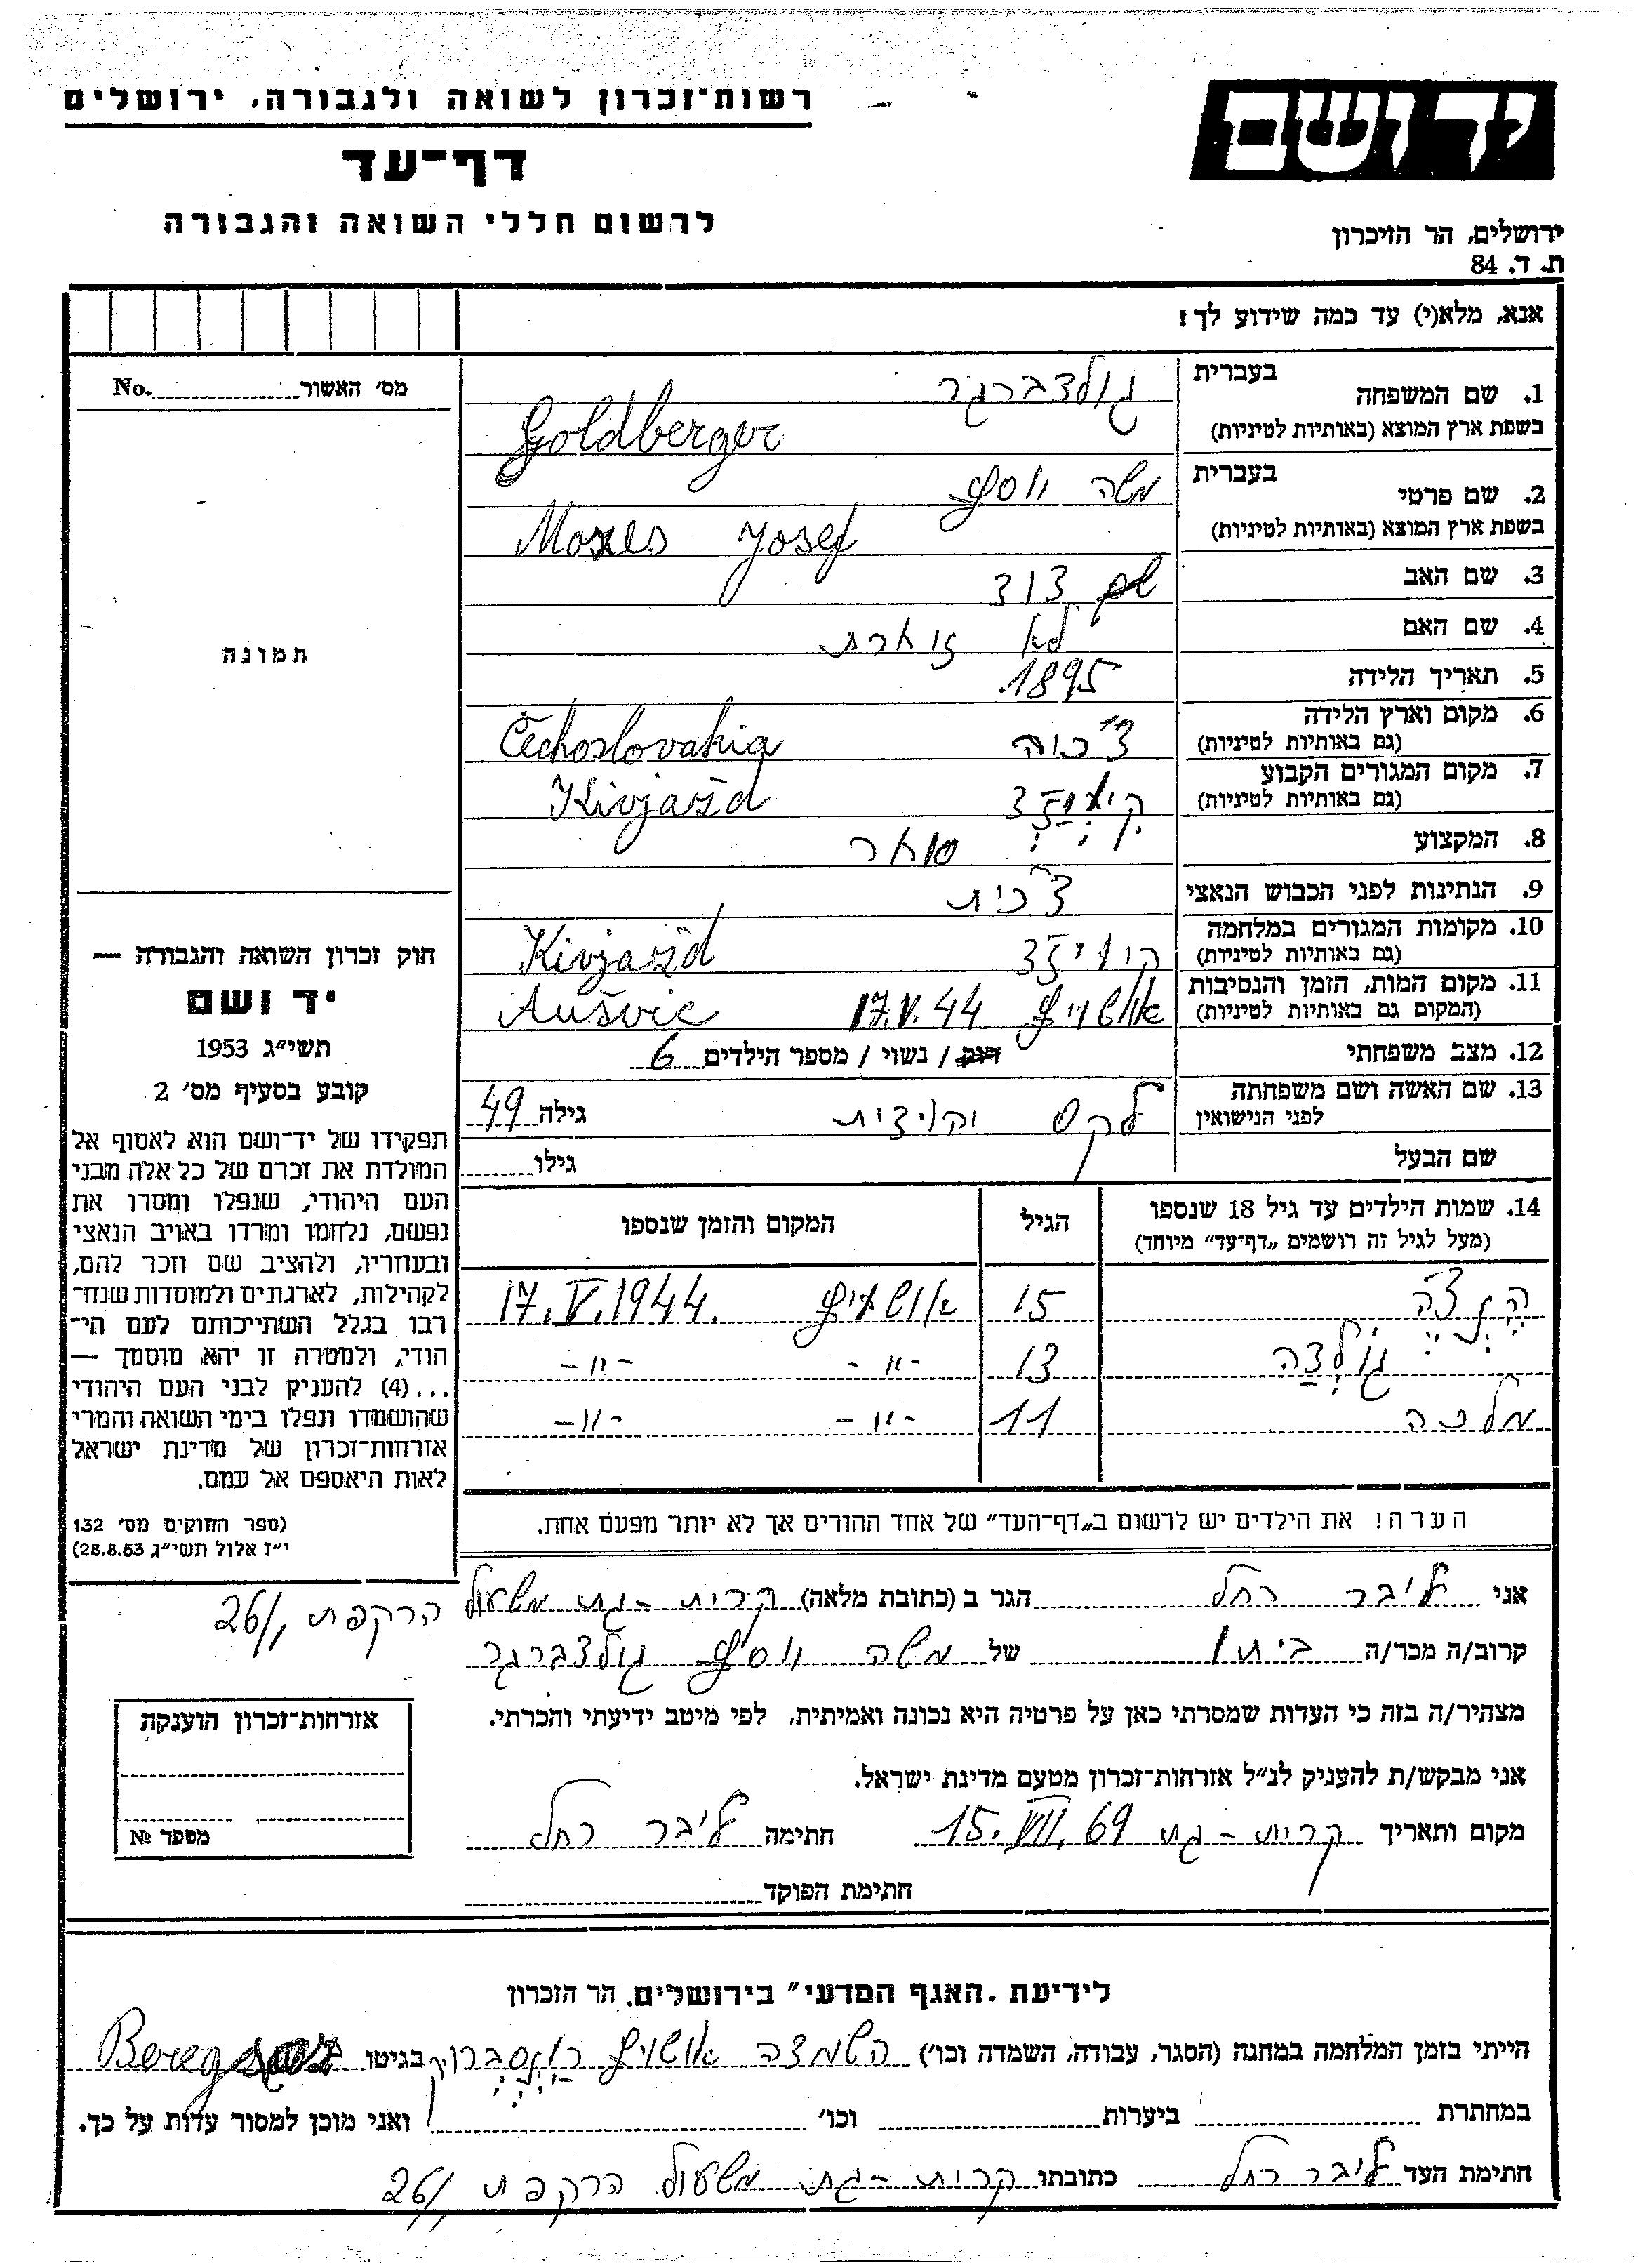 רשות־זכרון לשואה ולגבורה, ירושלים
יד ושם
דף־עד
לרשום חללי השואה והגבורה
ירושלים, הר הזיכרון
ת. ד. 84
אנא, מלא(י) עד כמה שידוע לך!
מס׳ האשור No.
תמונה
1. שם המשפחה
בעברית גולדברגר
בשפת ארץ המוצא (באותיות לטיניות) Goldberger
2. שם פרטי
בעברית משה יוסף
בשפת ארץ המוצא (באותיות לטיניות) Mozes Josef
3. שם האב דוד
4. שם האם לא זוכרת
5. תאריך הלידה 1895
6. מקום וארץ הלידה
(גם באותיות לטיניות) צ׳כיה Čechoslovakia
7. מקום המגורים הקבוע
(גם באותיות לטיניות) Kivjažd
8. המקצוע סוחר
9. הנתינות לפני הכבוש הנאצי צ׳כית
10. מקומות המגורים במלחמה
(גם באותיות לטיניות) Kivjažd
11. מקום המות, הזמן והנסיבות
(המקום גם באותיות לטיניות) אושויץ 17.V.44 Aušvic
12. מצב משפחתי רווק / נשוי / מספר הילדים 6
13. שם האשה ושם משפחתה
לפני הנישואין גילה 49
שם הבעל גילו
14. שמות הילדים עד גיל 18 שנספו
(מעל לגיל זה רושמים „דף־עד״ מיוחד)
הגיל
המקום והזמן שנספו
הינדה 15 אושויץ 17.V.1944.
גולדה 13 -״- -״-
מלכה 11 -״- -״-
הערה! את הילדים יש לרשום ב„דף־העד״ של אחד ההורים אך לא יותר מפעם אחת.
חוק זכרון השואה והגבורה —
יד ושם
תשי״ג 1953
קובע בסעיף מס׳ 2
תפקידו של יד־ושם הוא לאסוף אל
המולדת את זכרם של כל אלה מבני
העם היהודי, שנפלו ומסרו את
נפשם, נלחמו ומרדו באויב הנאצי
ובעוזריו, ולהציב שם וזכר להם,
לקהילות, לארגונים ולמוסדות שנח־
רבו בגלל השתייכותם לעם הי־
הודי, ולמטרה זו יהא מוסמך —
...(4) להעניק לבני העם היהודי
שהושמדו ונפלו בימי השואה והמרי
אזרחות־זכרון של מדינת ישראל
לאות היאספם אל עמם.
(ספר החוקים מס׳ 132
י״ז אלול תשי״ג 28.8.53)
אני ליבר רחל הגר ב (כתובת מלאה) קרית-גת משעול הרקפת 26/1
קרוב/ה מכר/ה ביתו של משה יוסף גולדברגר
מצהיר/ה בזה כי העדות שמסרתי כאן על פרטיה היא נכונה ואמיתית, לפי מיטב ידיעתי והכרתי.
אני מבקש/ת להעניק לנ״ל אזרחות־זכרון מטעם מדינת ישראל.
מקום ותאריך קרית-גת 15.VII.69 חתימה ליבר רחל
חתימת הפוקד
אזרחות־זכרון הוענקה
מספר №
לידיעת „האגף המדעי״ בירושלים, הר הזכרון
הייתי בזמן המלחמה במחנה (הסגר, עבודה, השמדה וכו׳) השמדה אושויץ בגיטו
במחתרת ביערות וכו׳ ואני מוכן למסור עדות על כך.
חתימת העד ליבר רחל כתובתו קרית-גת משעול הרקפת 26/1